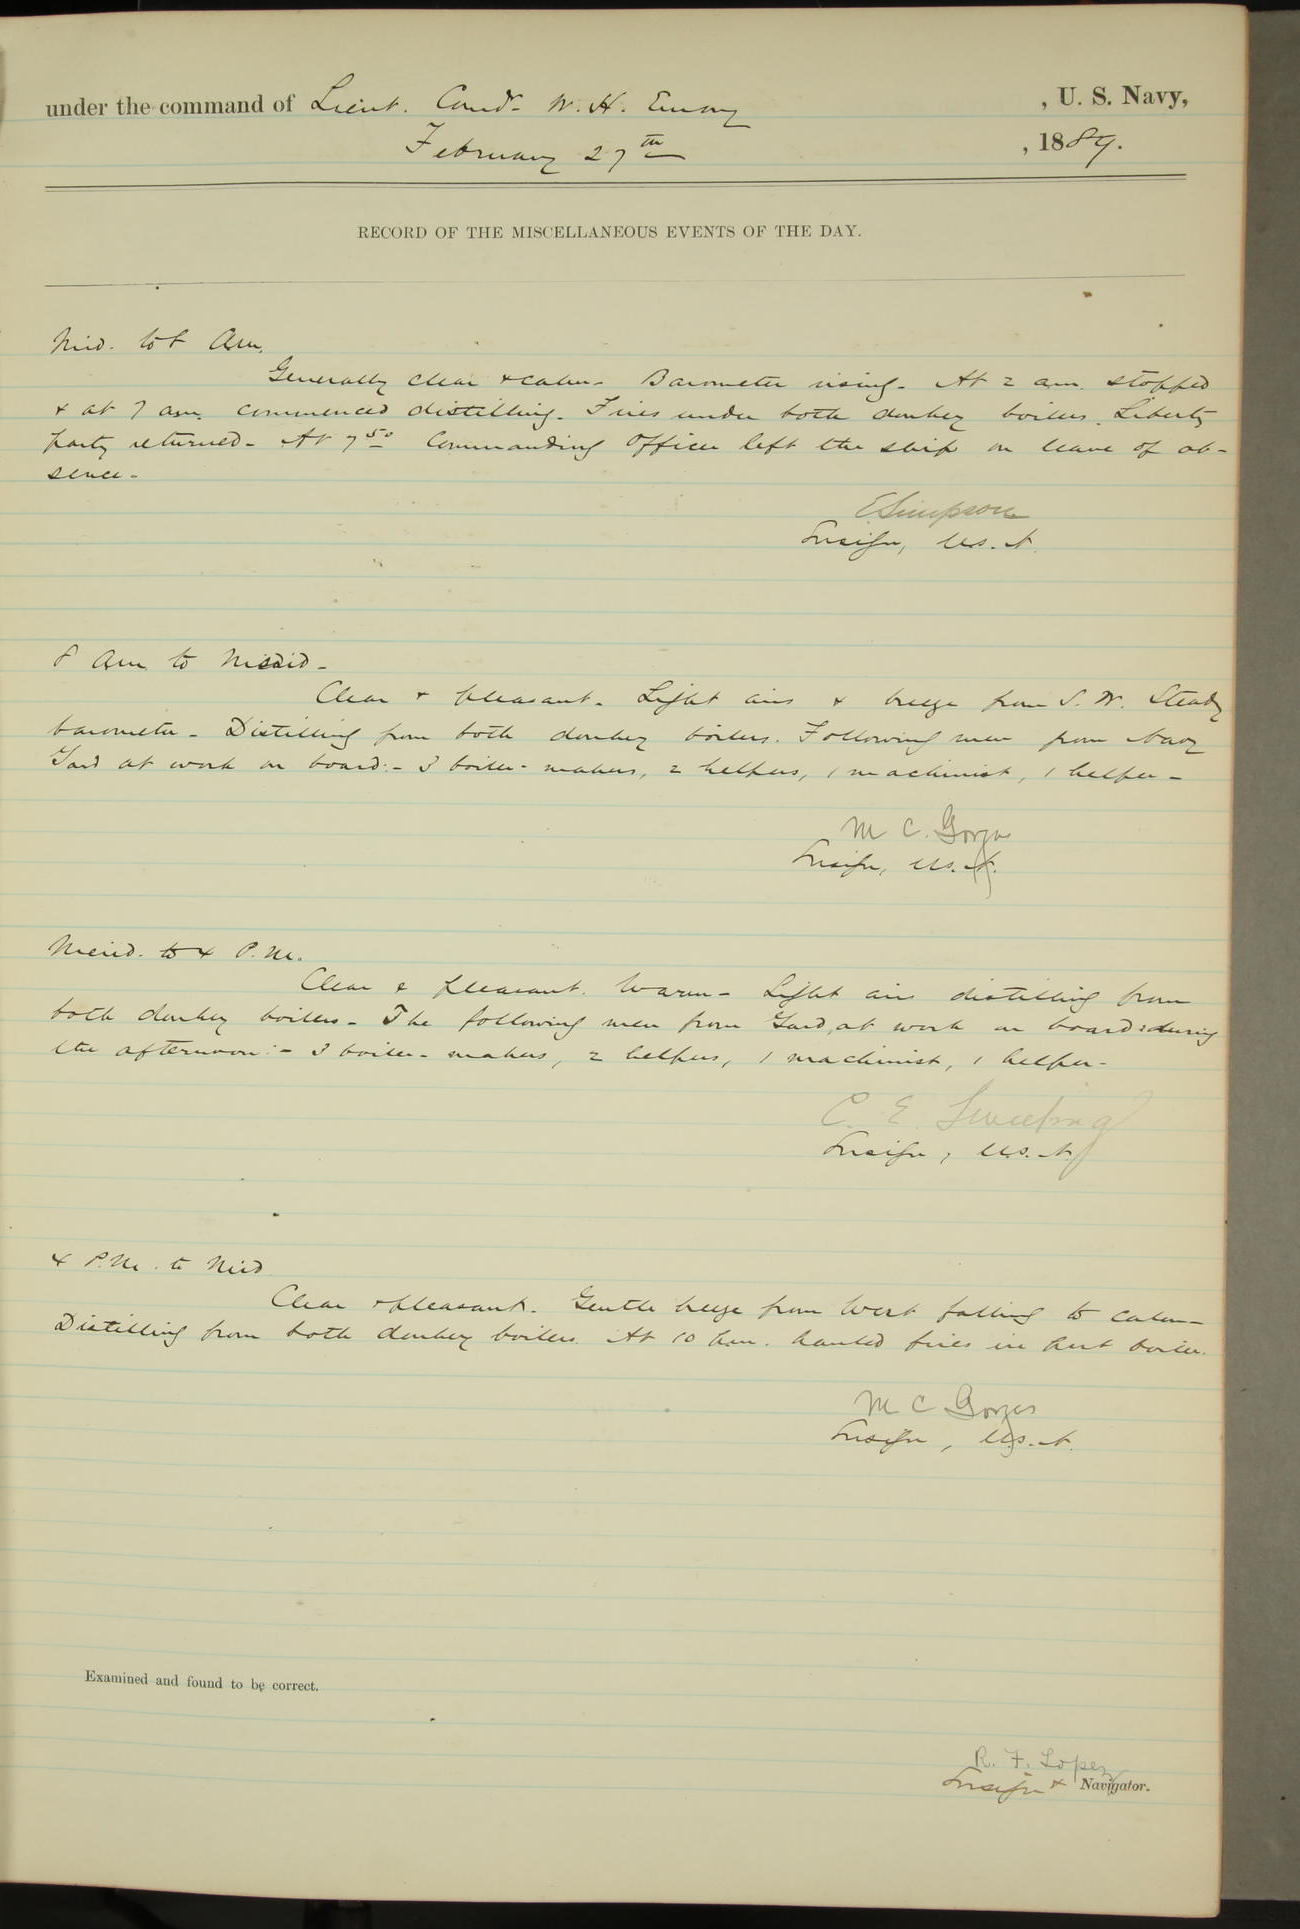 under the command of Lieut. Comd'r W. H. Emory, U. S. Navy,
February 27th, 1889.
RECORD OF THE MISCELLANEOUS EVENTS OF THE DAY.
Mid. to 8 Am.
Generally clear & calm - Barometer rising - At 2 am. stopped
& at 7 am. commenced distilling. Fires under both donkey boilers. Liberty
party returned - At 7 50 Commanding Officer left the ship on leave of ab-
sence -
E Simpson
Ensign, U.S.N.
8 Am to Merid -
Clear & pleasant. Light airs & breeze from S. W. Steady
barometer - Distilling from both donkey boilers. Following men from Navy
Yard at work on board:- 3 boiler-makers, 2 helpers, 1 machinist, 1 helper -
M C. Gorgas
Ensign, U.S.N.
Merid. to 4 P.M.
Clear & pleasant. Warm - Light airs distilling from
both donkey boilers - The following men from Yard, at work on board during
the afternoon:- 3 boiler-makers, 2 helpers, 1 machinist, 1 helper -
C. E. Sweeting
Ensign, U.S.N.
4 P.M. to Mid
Clear & pleasant. Gentle breeze from West falling to calm -
Distilling from both donkey boilers. At 10 p.m. hauled fires in port boiler.
M C Gorgas
Ensign, U.S.N.
Examined and found to be correct.
R. F. Lopez
Ensign & Navigator.